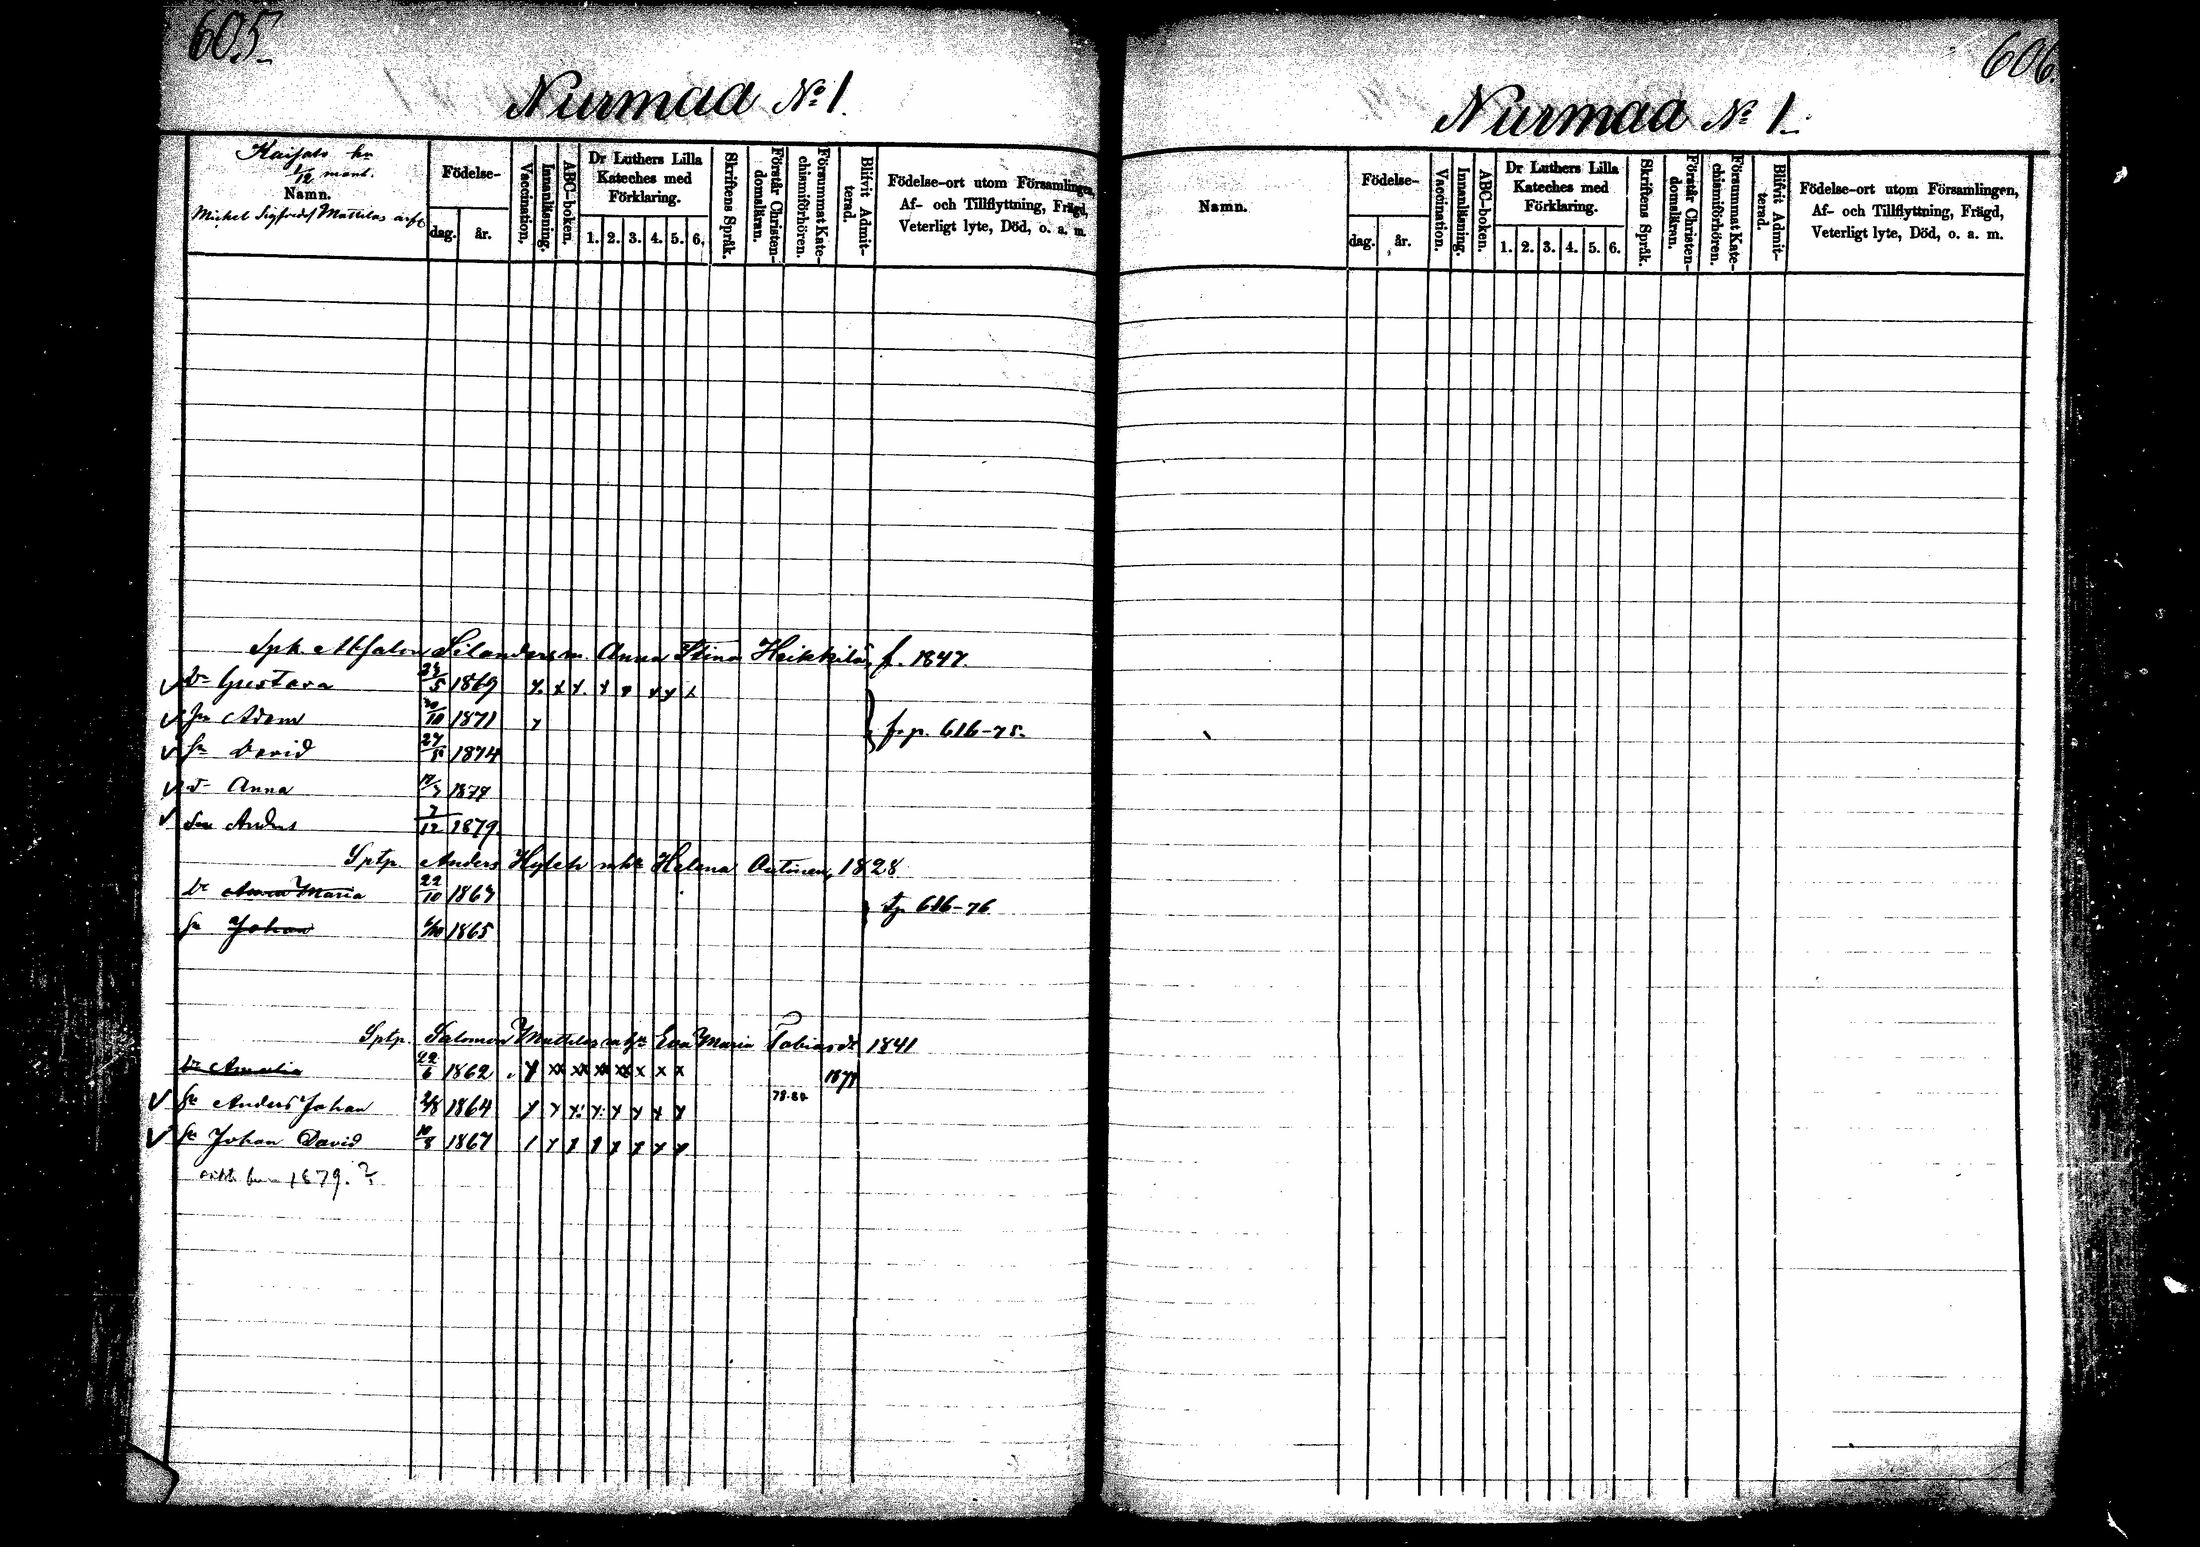 605
Nurmaa No 1.
Kaisals hn
1/12 mant.
Namn.
Michel Sigfredsf Mattilas arfv.
Födelse-
dag. år.
Vaccination.
Innanläsning.
ABC-boken.
Dr Luthers Lilla
Kateches med
Förklaring.
1. 2. 3. 4. 5. 6.
Skriftens Språk.
Förstår Christen-
domsläran.
Försummat Kate-
chismiförhören.
Blifvit Admit-
terad.
Födelse-ort utom Församlingen,
Af- och Tillflyttning, Frägd,
Veterligt lyte, Död, o. a. m.
Absalon Silanders m. Anna Stina Heikkilä, f. 1847.
✓ Dr Gustava 5 1869 x x x x x x x x
✓ Sn Adam 10 1871 x
fr. p. 616-75.
✓ Sn David 1874
✓ Dr Anna 1877
✓ Sn Anders 7/12 1879
Sptp. Anders Helena 1828
Dr Anna Maria 22/10 1867
tp 616-76
Sn Johan 6/10 1865
Sptp. Salomon Mattilas Eva Maria Tobiasdr 1841
Dr Amalia 22/6 1862 x xx xx xx xx x x x 1877
✓ Sn Anders Johan 2/8 1864 x x x x x x x x 78.80.
✓ Sn Johan David 10/8 1867
1879. ?
606.
Nurmaa No 1.
Namn.
Födelse-
dag. år.
Vaccination.
Innanläsning.
ABC-boken.
Dr Luthers Lilla
Kateches med
Förklaring.
1. 2. 3. 4. 5. 6.
Skriftens Språk.
Förstår Christen-
domsläran.
Försummat Kate-
chismiförhören.
Blifvit Admit-
terad.
Födelse-ort utom Församlingen,
Af- och Tillflyttning, Frägd,
Veterligt lyte, Död, o. a. m.